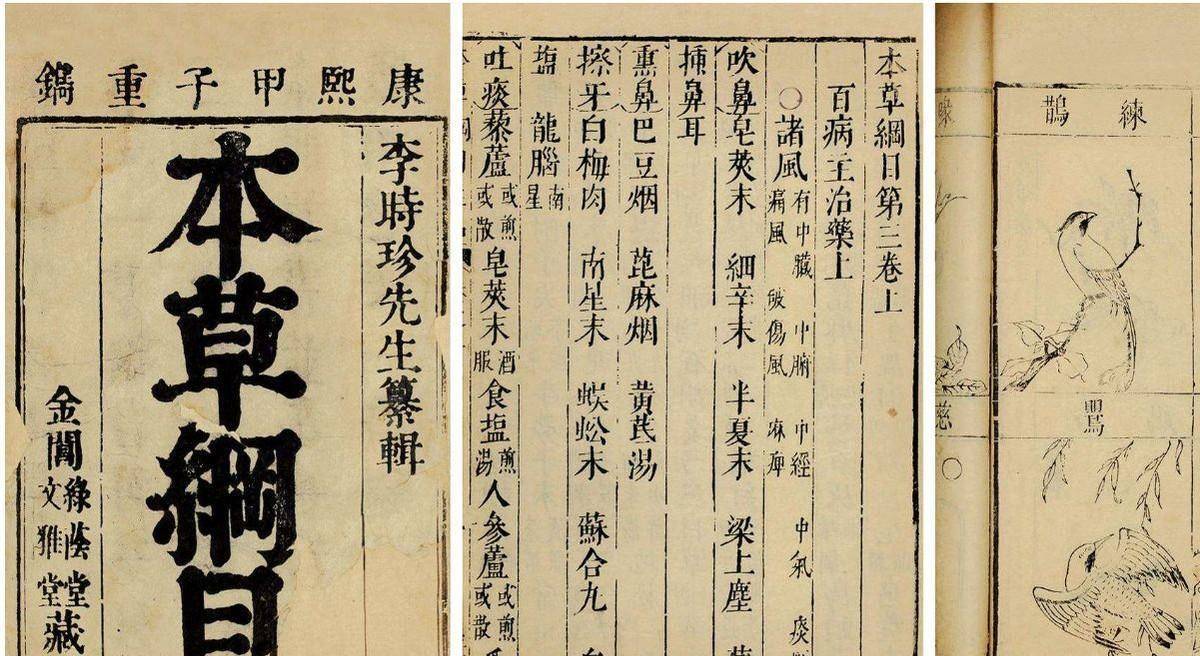 康熙甲子重鐫
李時珍先生纂輯
本草綱目
金閶綠蔭堂文雅堂藏
本草綱目第三卷上
百病主治藥上
○諸風 有中臟 中腑 中經 中氣 痰
痛風 破傷風 麻痺
吹鼻皂莢末 細辛末 半夏末 梁上塵
揷鼻耳
熏鼻巴豆烟 萞麻烟 黃芪湯
擦牙白梅肉 南星末 蜈蚣末 蘇合丸
塩 龍腦南星
吐痰藜蘆或煎或散 皂莢末酒服 食塩煎湯 人參蘆或煎或散
練鵲
鸎